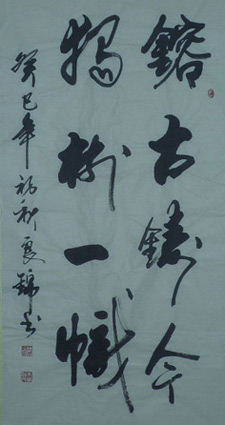 鎔古鑄今
獨樹一幟
癸巳年初秋夏錦书